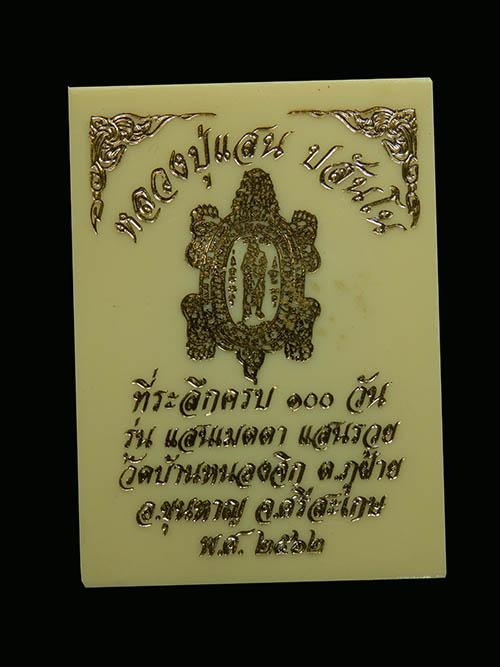 หลวงปู่แสน ปสันโน
ที่ระลึกครบ ๑๐๐ วัน
รุ่น แสนเมตตา แสนรวย
วัดบ้านหนองจิก ต.ภูฝ้าย
อ.ขุนหาญ จ.ศรีสะเกษ
พ.ศ. ๒๕๖๒